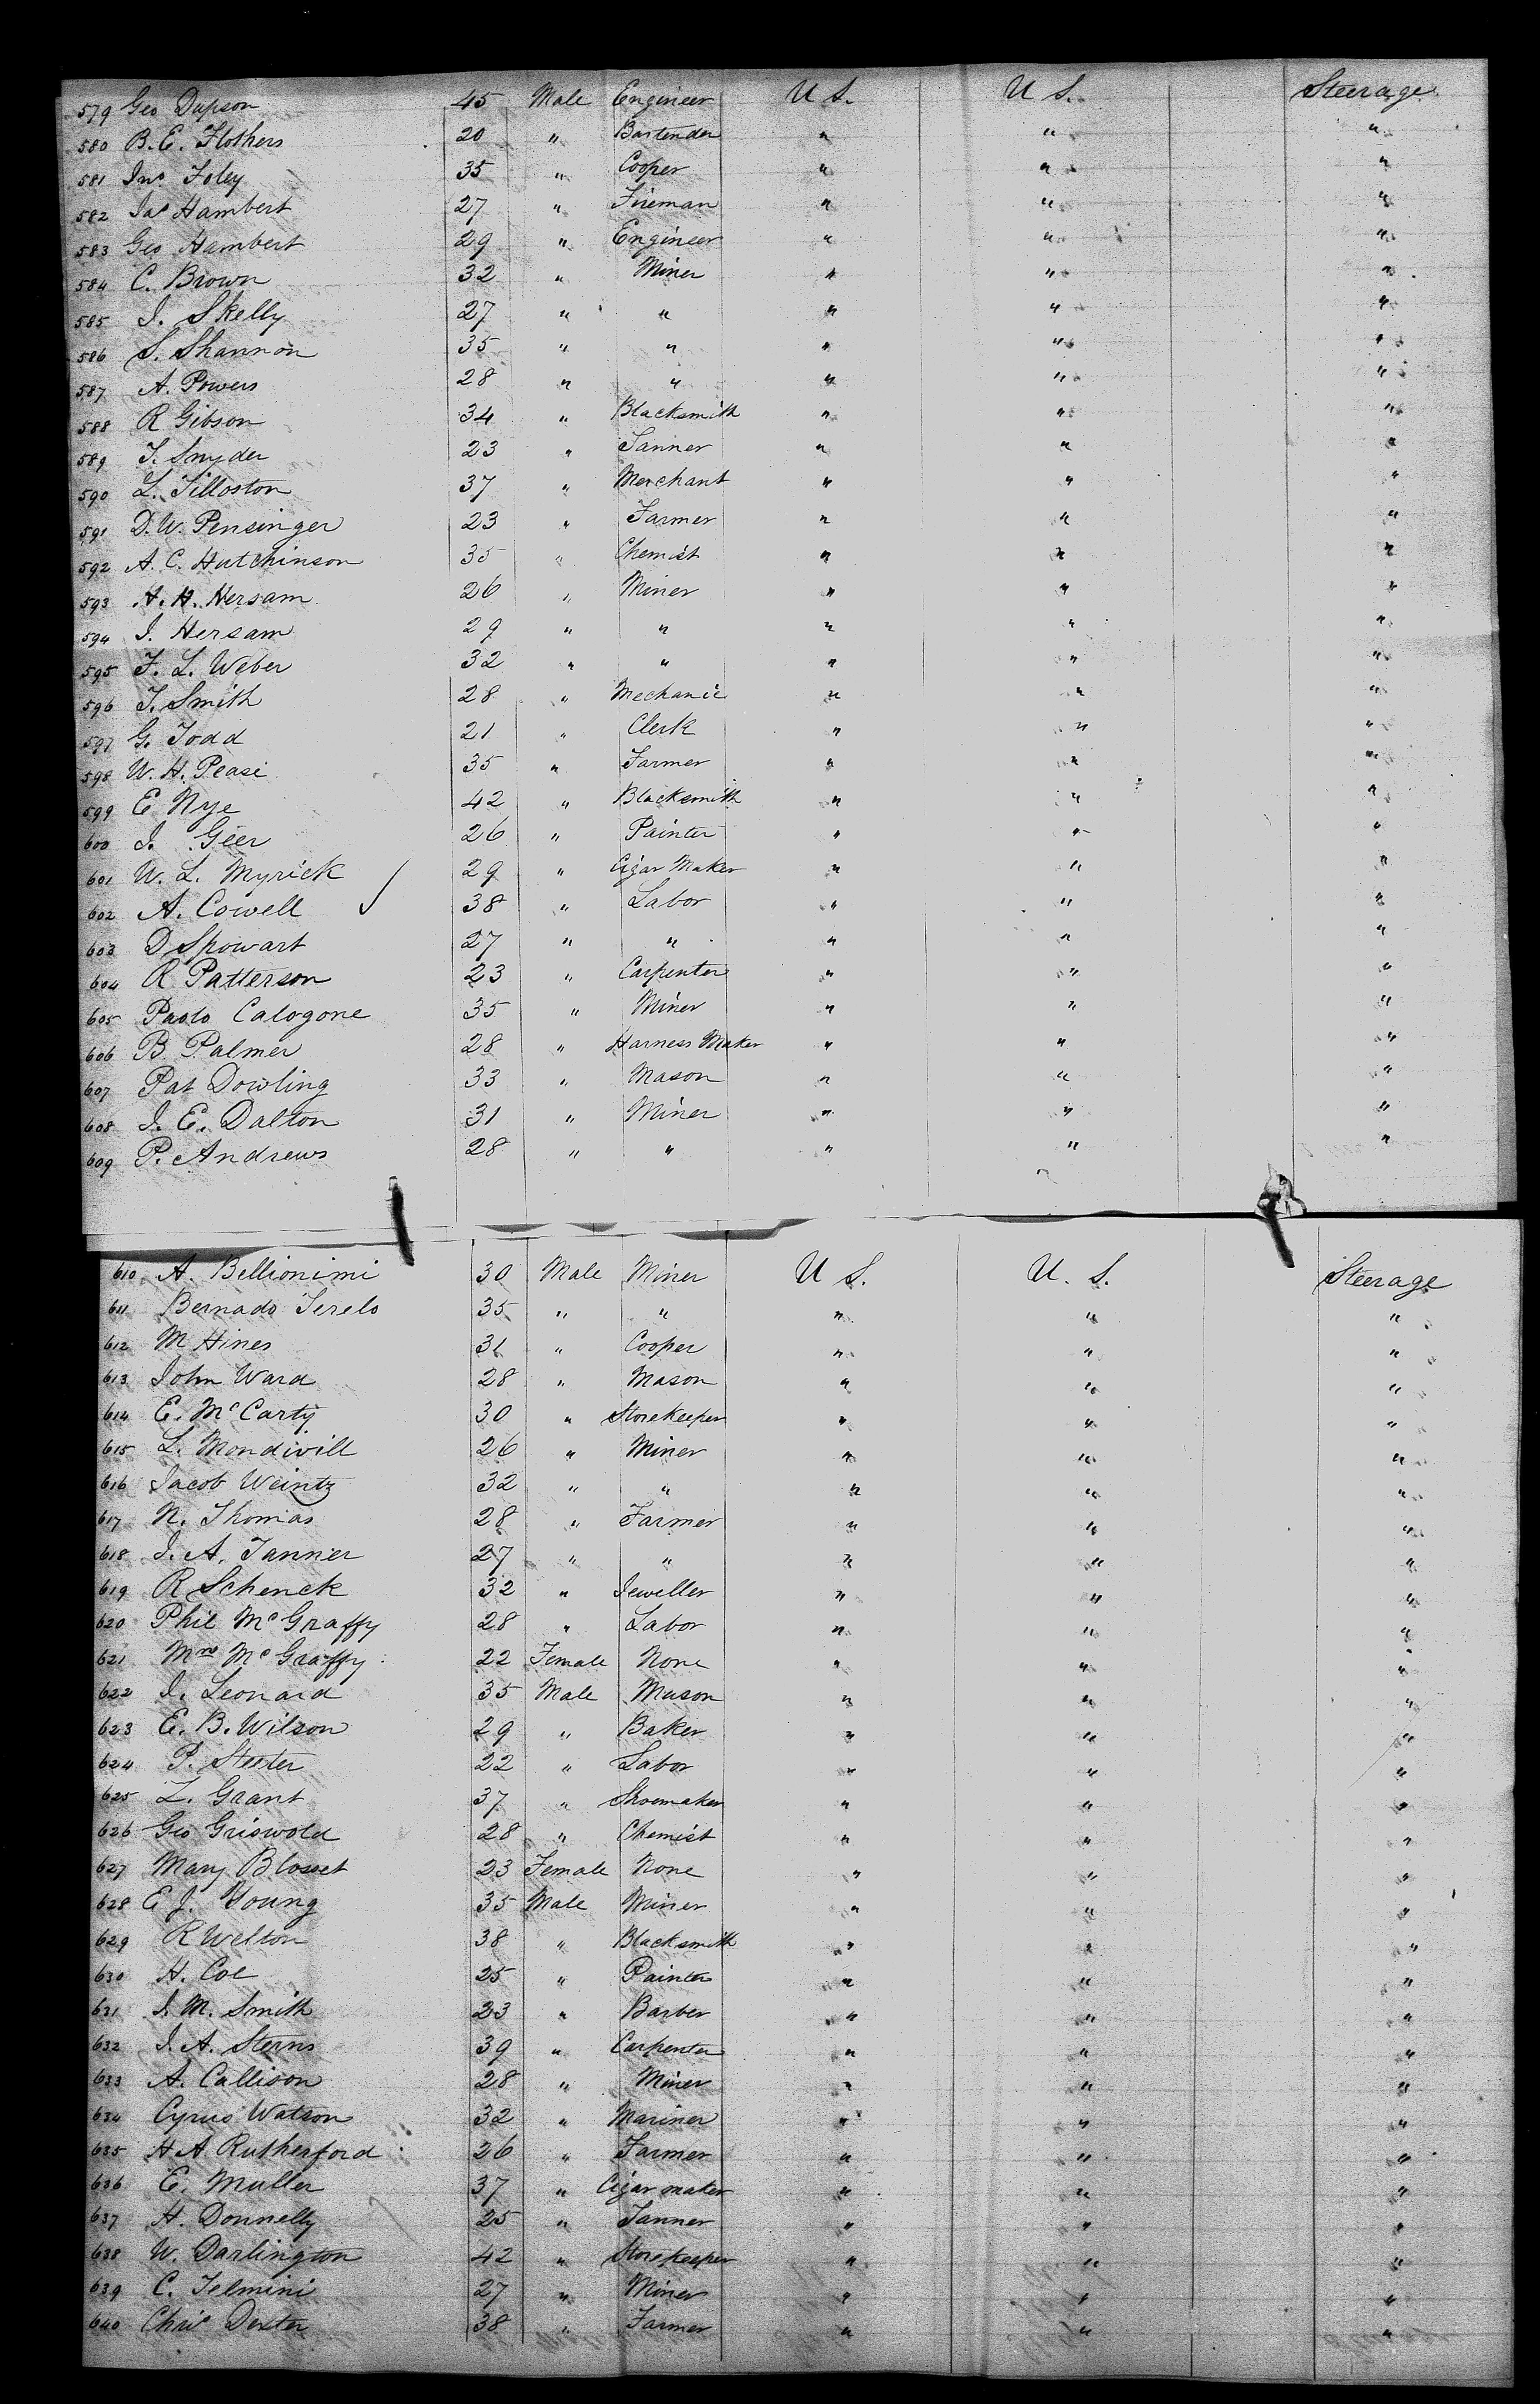 579 Geo Dapson 45 Male Engineer U S. U S. Steerage
580 B. E. Flothers 20 " Bartender " " "
581 Jno. Foley 35 " Cooper " " "
582 Jas Hambert 27 " Fireman " " "
583 Geo Hambert 29 " Engineer " " "
584 C. Brown 32 " Miner " " "
585 J. Skelly 27 " " " " "
586 S. Shannon 35 " " " " "
587 A. Powers 28 " " " " "
588 R Gibson 34 " Blacksmith " " "
589 J. Snyder 23 " Tanner " " "
590 L. Tilloston 37 " Merchant " " "
591 D. W. Pensinger 23 " Farmer " " "
592 A. C. Hutchinson 35 " Chemist " " "
593 A. H. Hersam 26 " Miner " " "
594 J. Hersam 29 " " " " "
595 F. L. Weber 32 " " " " "
596 T. Smith 28 " Mechanic " " "
597 G. Todd 21 " Clerk " " "
598 W. H. Pease 35 " Farmer " " "
599 E Nye 42 " Blacksmith " " "
600 J. Geer 26 " Painter " " "
601 W. L. Myrick 29 " Cigar Maker " " "
602 A. Cowell 38 " Labor " " "
603 D Spowart 27 " " " " "
604 R Patterson 23 " Carpenter " " "
605 Paolo Calogone 35 " Miner " " "
606 B. Palmer 28 " Harness Maker " " "
607 Pat Dowling 33 " Mason " " "
608 J. E. Dalton 31 " Miner " " "
609 P. Andrews 28 " " " " "
610 A. Bellionimi 30 Male Miner U S. U. S. Steerage
611 Bernado Terelo 35 " " " " "
612 M Hines 31 " Cooper " " "
613 John Ward 28 " Mason " " "
614 E. McCarty 30 " Storekeeper " " "
615 L. Mondivill 26 " Miner " " "
616 Jacob Weintz 32 " " " " "
617 N. Thomas 28 " Farmer " " "
618 J. A. Tanner 27 " " " " "
619 R Schenck 32 " Jeweller " " "
620 Phil McGraffy 28 " Labor " " "
621 Mrs McGraffy 22 Female None " " "
622 J. Leonard 35 Male Mason " " "
623 E. B. Wilson 29 " Baker " " "
624 P. Steeter 22 " Labor " " "
625 L. Grant 37 " Shoemaker " " "
626 Geo Griswold 28 " Chemist " " "
627 Mary Blosset 23 Female None " " "
628 E J. Young 35 Male Miner " " "
629 R Welton 38 " Blacksmith " " "
630 H. Coe 25 " Painter " " "
631 J. M. Smith 23 " Barber " " "
632 J. A. Sterns 39 " Carpenter " " "
633 A. Callison 28 " Miner " " "
634 Cyrus Watson 32 " Mariner " " "
635 H A Rutherford 26 " Farmer " " "
636 E. Muller 37 " Cigar maker " " "
637 H. Donnelly 25 " Tanner " " "
638 W. Darlington 42 " Storekeeper " " "
639 C. Telmini 27 " Miner " " "
640 Chris Dexter 38 " Farmer " " "